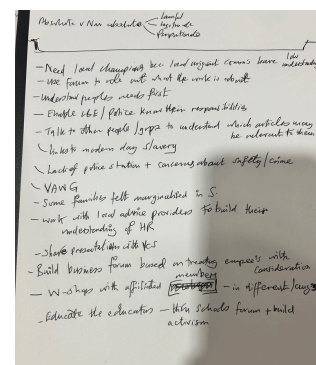 Absolute v Non absolute
Lawful
legitimate
Proportionate
- Need local champions bec local migrant comms have low understanding
- Use forum to role out what the work is about
- Understand peoples needs first
- Enable LGE / Police know their responsibilities
- Talk to other people / gops to understand which articles may
be relevant to them
links to modern day slavery
Lack of police station + concerns about safety / crime
VAWG
- Some families felt marginalised in S.
- work with local advice providers to build their
understanding of HR
- Share presentation with VCS
- Build business forum based on treating empee's with
consideration
members
- W-shops with affiliated - in different lang's
- Educate the educators - thru schools forum + build
activism